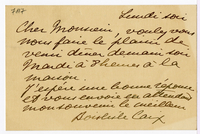 787
Lundi soir
Cher Monsieur voulez vous
nous faire le plaisir de
venir dîner demain soir
Mardi à 8 heures à la
maison.
J'espère une bonne réponse
et vous envoie en attendant
mon souvenir le meilleur